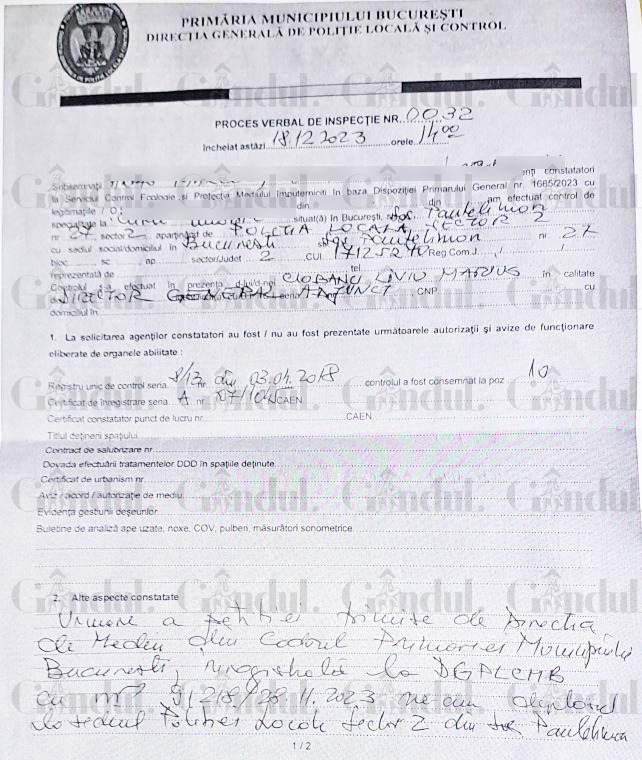 PRIMĂRIA MUNICIPIULUI BUCUREȘTI
DIRECȚIA GENERALĂ DE POLIȚIE LOCALĂ ȘI CONTROL
PROCES VERBAL DE INSPECȚIE NR. 0032
încheiat astăzi 18.12.2023 orele 14 00
Subsemnații enți constatatori
la Serviciul Control Ecologie și Protecția Mediului împuterniciți în baza Dispoziției Primarului General nr. 1685/2023 cu
legitimațiile / 0 din din am efectuat control de
specialitate la situat(ă) în București, Șos. Pantelimon
nr 27 sector 2 aparținând de POLIȚIA LOCALĂ SECTOR 2
cu sediul social/domiciliul în București Șos. Pantelimon nr 27
bloc sc ap sector/Județ 2 CUI Reg.Com.J / /
reprezentată de tel.
Controlul s-a efectuat în prezența d-lui/d-nei CIOBANU LIVIU MARIUS în calitate
de DIRECTOR GENERAL ADJUNCT CNP cu
domiciliul în
1. La solicitarea agenților constatatori au fost / nu au fost prezentate următoarele autorizații și avize de funcționare
eliberate de organele abilitate :
Registru unic de control seria nr. din 03.04.2018 controlul a fost consemnat la poz 10
Certificat de înregistrare seria A nr CAEN
Certificat constatator punct de lucru nr CAEN
Titlul deținerii spațiului
Contract de salubrizare nr
Dovada efectuării tratamentelor DDD în spațiile deținute
Certificat de urbanism nr
Aviz / acord / autorizație de mediu
Evidența gestiunii deșeurilor
Buletine de analiză ape uzate, noxe, COV, pulberi, măsurători sonometrice
2. Alte aspecte constatate
Urmare a petiției trimise de Direcția
de Mediu din Cadrul Primăriei Municipiului
București, înregistrată la DGPLCMB
cu nr 91218/28.11.2023 ne-am deplasat
la sediul Poliției Locale Sector 2 din Șos Pantelimon
1 / 2
Gândul.